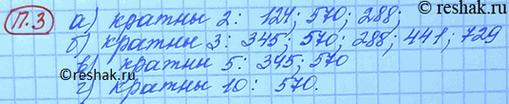 reshak.ru
П.3 а) кратны 2: 124; 570; 288;
б) кратны 3: 345; 570; 288; 441; 729
в) кратны 5: 345; 570
г) кратны 10: 570.